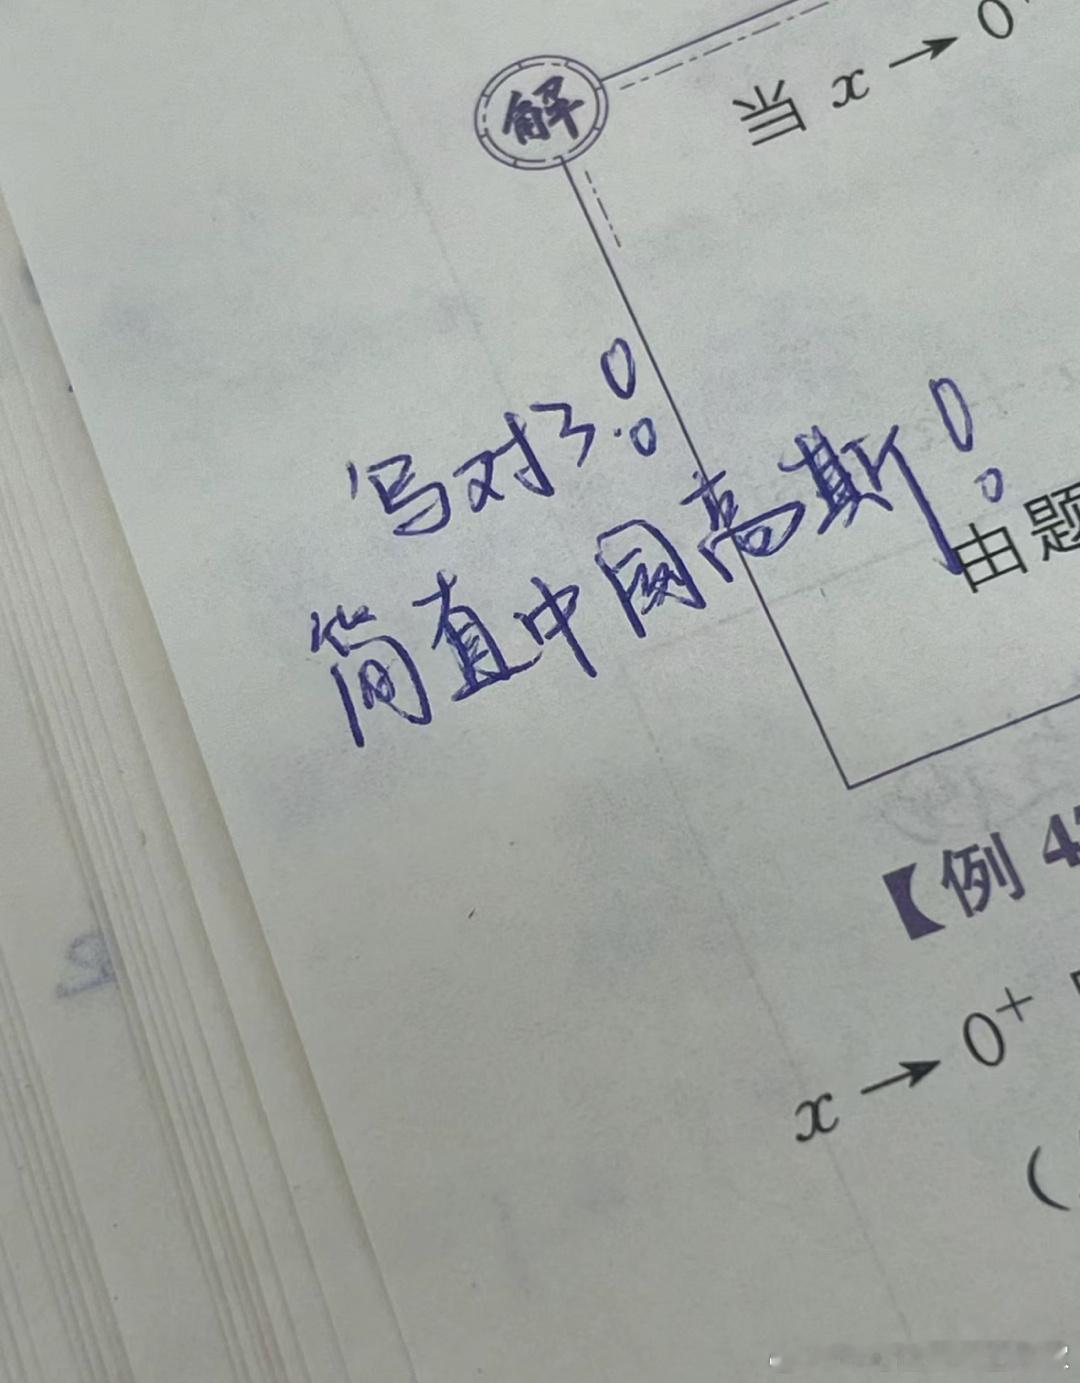 解
当 x → 0
写对了!
简直中国高斯!
由题
【例 4
x → 0⁺
(